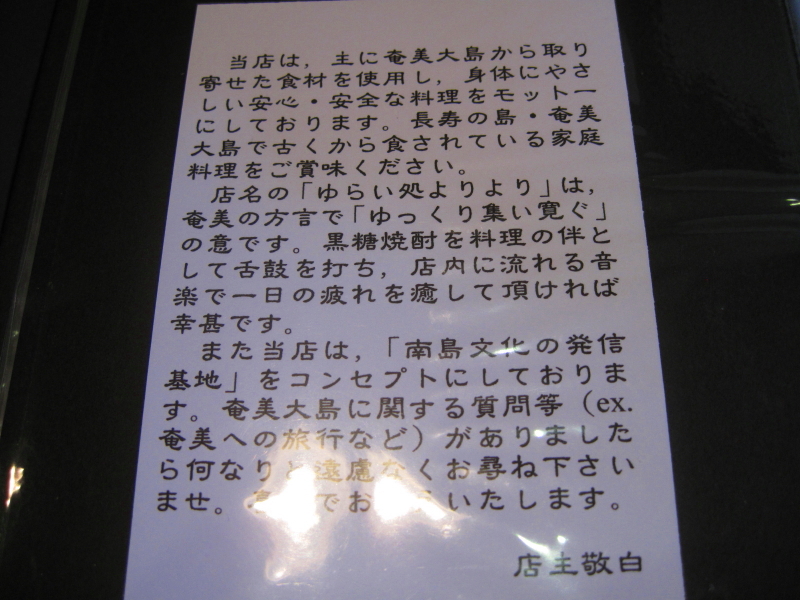 当店は，主に奄美大島から取り
寄せた食材を使用し，身体にやさ
しい安心・安全な料理をモットー
にしております。長寿の島・奄美
大島で古くから食されている家庭
料理をご賞味ください。
店名の「ゆらい処よりより」は，
奄美の方言で「ゆっくり集い寛ぐ」
の意です。黒糖焼酎を料理の伴と
して舌鼓を打ち，店内に流れる音
楽で一日の疲れを癒して頂ければ
幸甚です。
また当店は，「南島文化の発信
基地」をコンセプトにしておりま
す。奄美大島に関する質問等（ex.
奄美への旅行など）がありました
ら何なりと遠慮なくお尋ね下さい
ませ。 でお いたします。
店主敬白